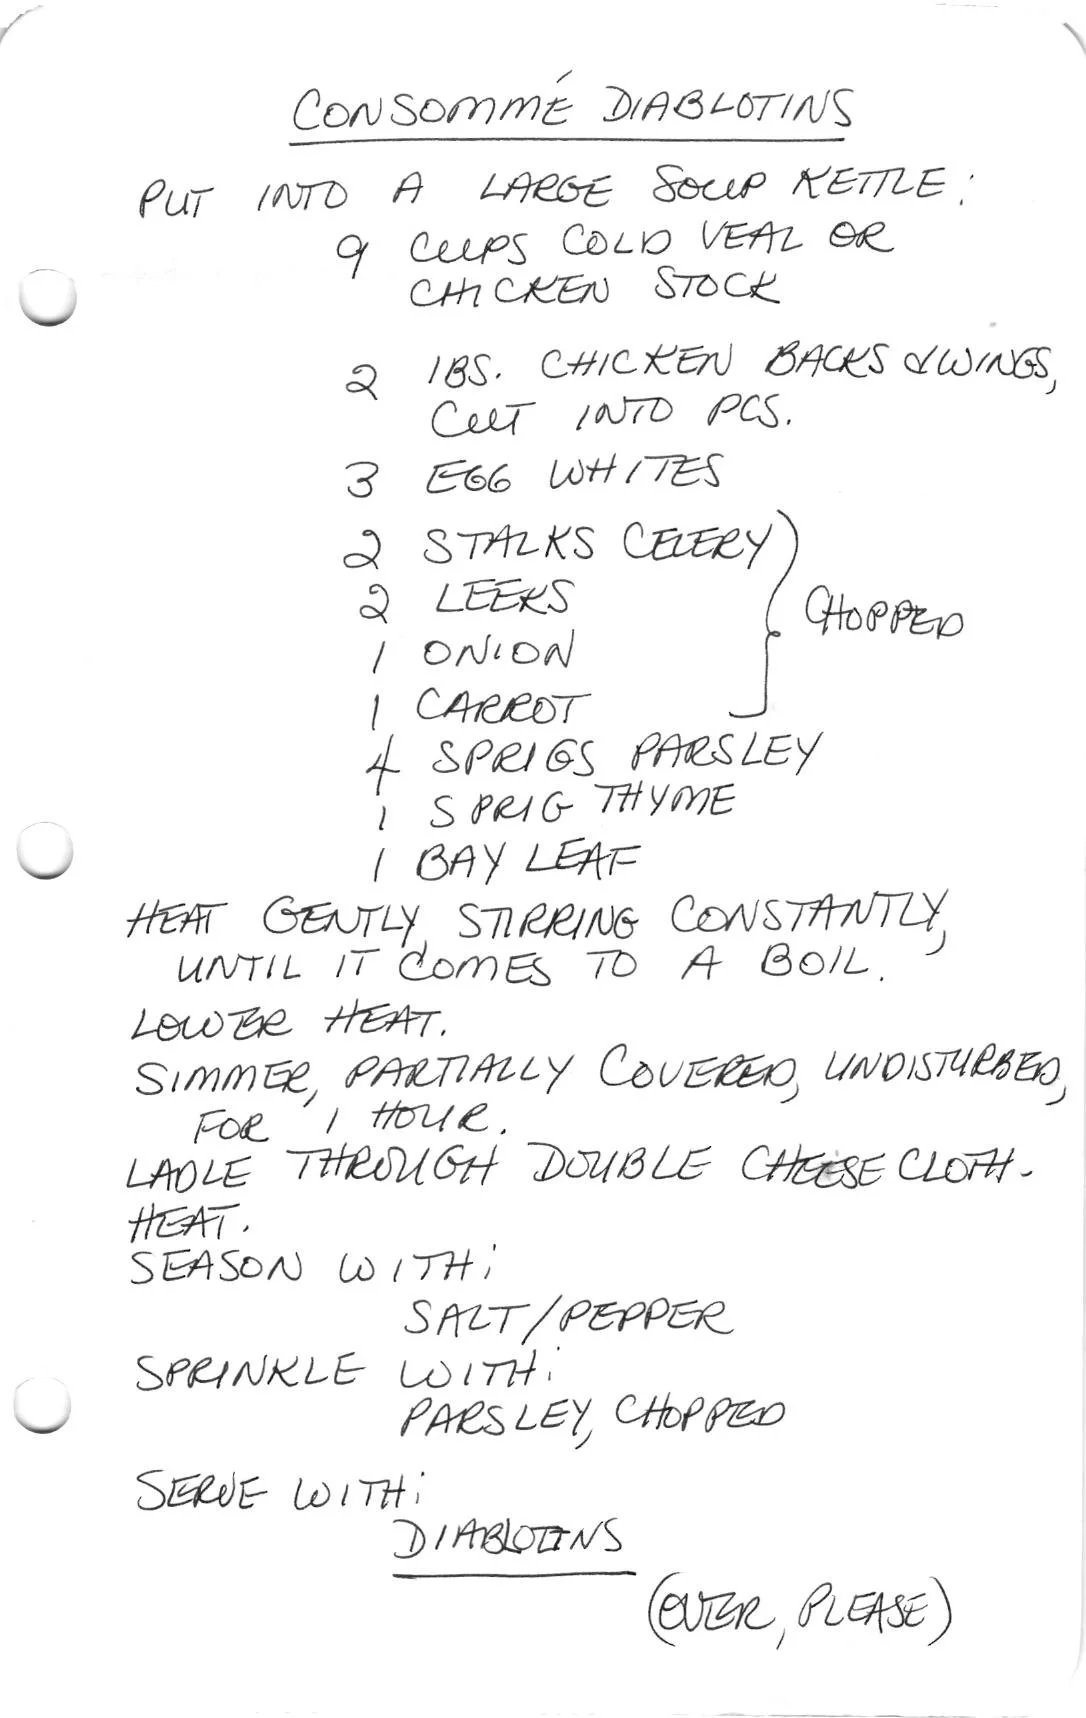 CONSOMMÉ DIABLOTINS
PUT INTO A LARGE SOUP KETTLE:
9 CUPS COLD VEAL OR
CHICKEN STOCK
2 LBS. CHICKEN BACKS & WINGS,
CUT INTO PCS.
3 EGG WHITES
2 STALKS CELERY
2 LEEKS
CHOPPED
1 ONION
1 CARROT
4 SPRIGS PARSLEY
1 SPRIG THYME
1 BAY LEAF
HEAT GENTLY, STIRRING CONSTANTLY,
UNTIL IT COMES TO A BOIL.
LOWER HEAT.
SIMMER, PARTIALLY COVERED, UNDISTURBED,
FOR 1 HOUR.
LADLE THROUGH DOUBLE CHEESE CLOTH.
HEAT.
SEASON WITH:
SALT/PEPPER
SPRINKLE WITH:
PARSLEY, CHOPPED
SERVE WITH:
DIABLOTINS
(OVER, PLEASE)